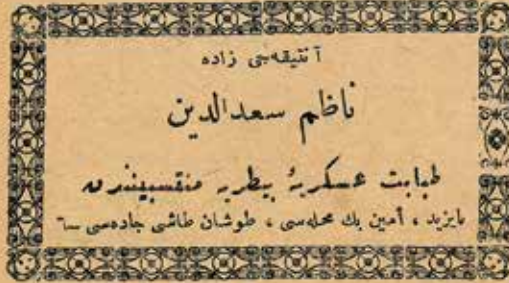 آنتیقه‌جی زاده
ناظم سعدالدین
طبابت عسكریهٔ بیطریه منتسبیندن
بایزید ، أمین بك محله‌سی ، طوشان طاشی جاده‌سی